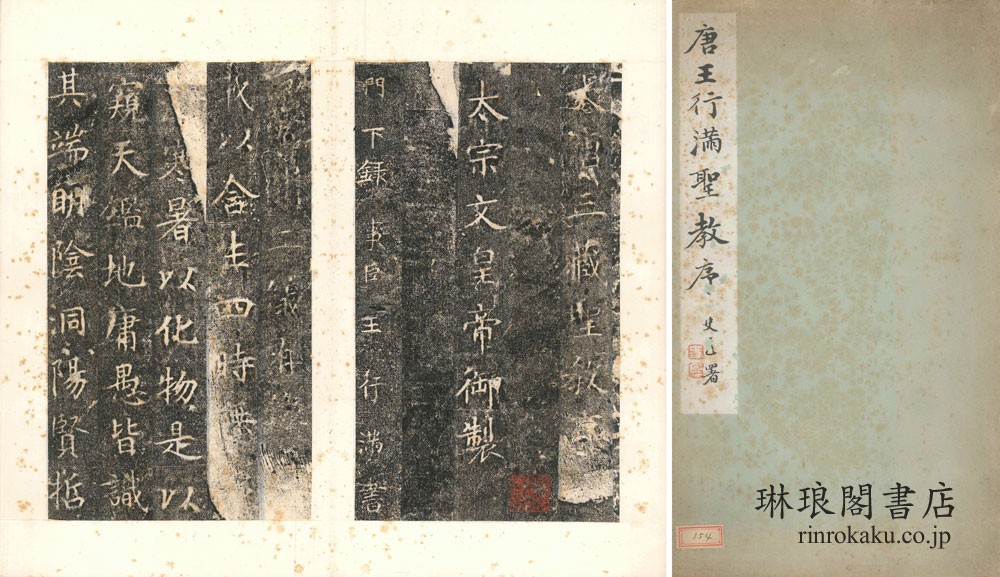 唐王行滿聖教序
署
大唐三藏聖教序
太宗文皇帝御製
門下錄事臣王行滿書
二儀有
載以含生四時無
寒暑以化物是以
窺天鑑地庸愚皆識
其端明陰洞陽賢哲
154
琳琅閣書店
rinrokaku.co.jp